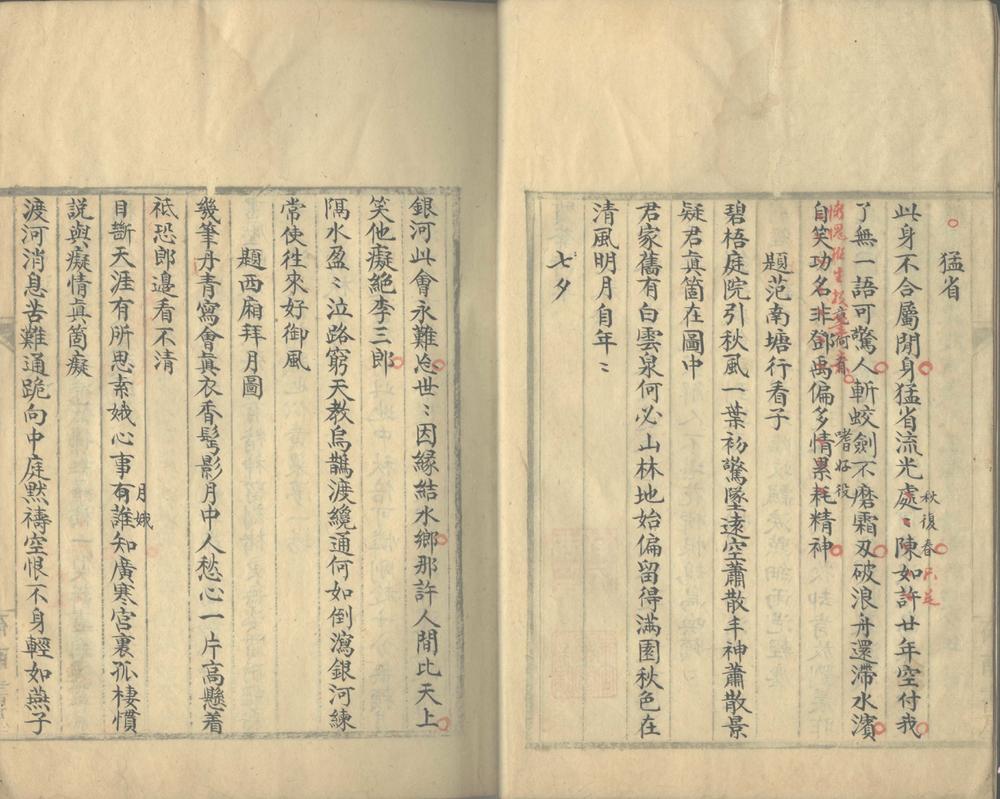 猛省
此身不合屬閒身猛省流光處〻陳如許廿年空付我
秋復春只是
了無一語可驚人斬蛟劍不磨霜刃破浪舟還滯水濱
自笑功名非鄧禹偏多情累耗精神
嗜好役
題范南塘行看子
碧梧庭院引秋風一葉初驚墜遠空蕭散丰神蕭散景
疑君真箇在圖中
君家舊有白雲泉何必山林地始偏留得滿園秋色在
清風明月自年〻
七夕
銀河此會永難忘世〻因緣結水鄉那許人間比天上
笑他癡絕李三郎
隔水盈〻泣路窮天教烏鵲渡纔通何如倒瀉銀河練
常使往來好御風
題西廂拜月圖
幾筆丹青寫會真衣香髩影月中人愁心一片高懸着
祗恐郎邊看不清
目斷天涯有所思素娥心事有誰知廣寒宮裏孤棲慣
月娥
說與癡情真箇癡
渡河消息苦難通跪向中庭默禱空恨不身輕如燕子